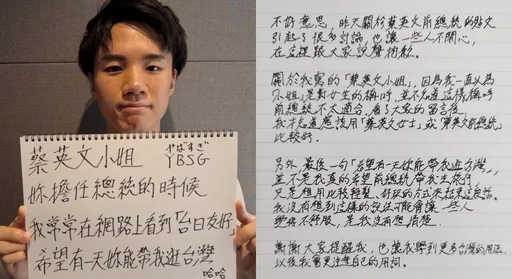 蔡英文小姐
やばすぎ
YBSG
妳擔任總統的時候
我常常在網路上看到「台日友好」
希望有一天妳能帶我逛台灣
哈哈
不好意思，昨天關於蔡英文前總統的貼文
引起了很多討論，也讓一些人不開心，
在這裡跟大家說聲抱歉。
關於我寫的「蔡英文小姐」，因為我一直以為
「小姐」是對女生的稱呼，並不知道這樣稱呼
前總統不太適合。看了大家的留言後，
我才知道應該用「蔡英文女士」或「蔡英文前總統」
比較好。
另外，最後一句「希望有一天你能帶我逛台灣」，
並不是我真的希望前總統帶我去旅行，
只是想用比較輕鬆、好玩的方式來結束這段話。
我沒有想到這樣的說法可能會讓一些人
覺得不舒服，是我沒有想清楚。
謝謝大家提醒我，也讓我學到更多台灣的用法。
以後我會更注意自己的用詞。